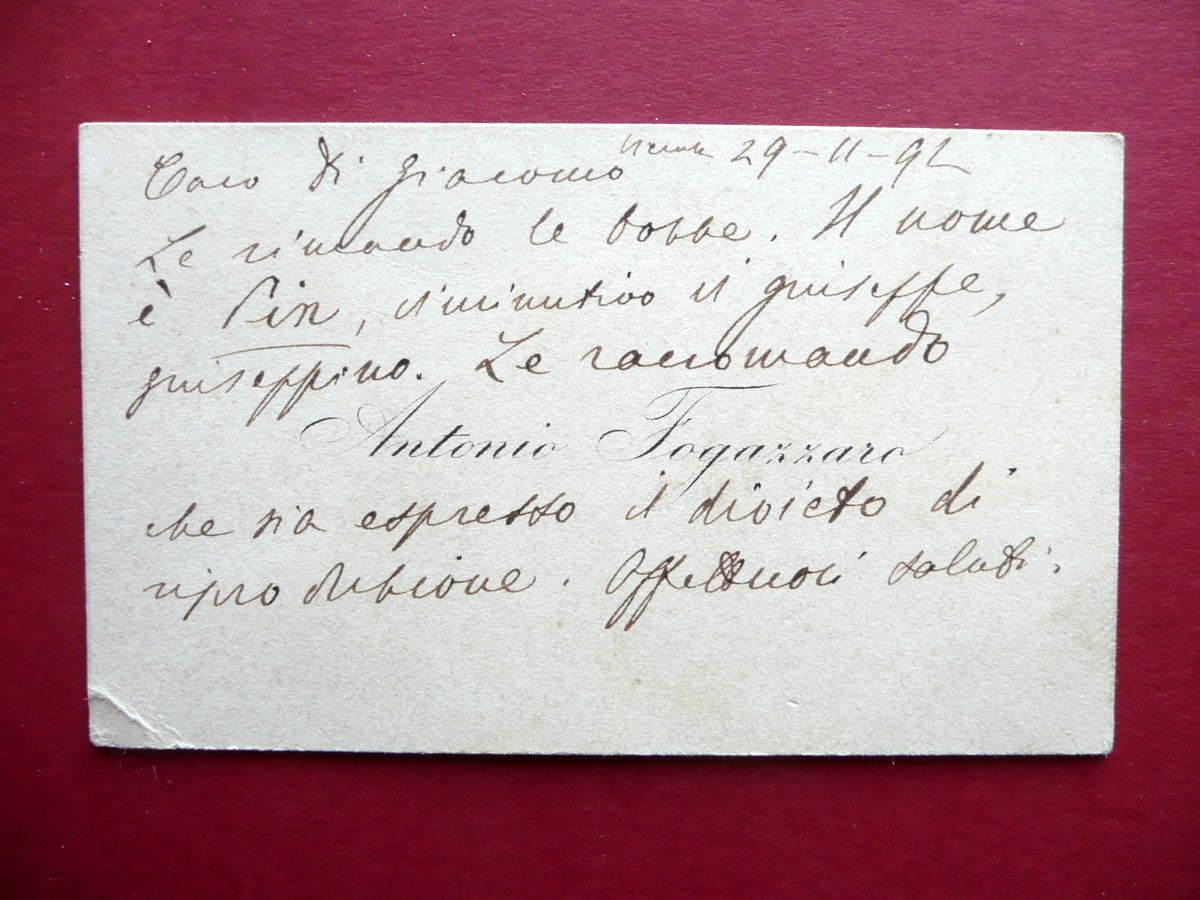 Caro Di Giacomo Vicenza 29-11-92
Le rimando le bozze. Il nome
è Pin, diminutivo di Giuseppe,
Giuseppino. Le raccomando
Antonio Fogazzaro
che sia espresso il divieto di
riproduzione. Affettuosi saluti.